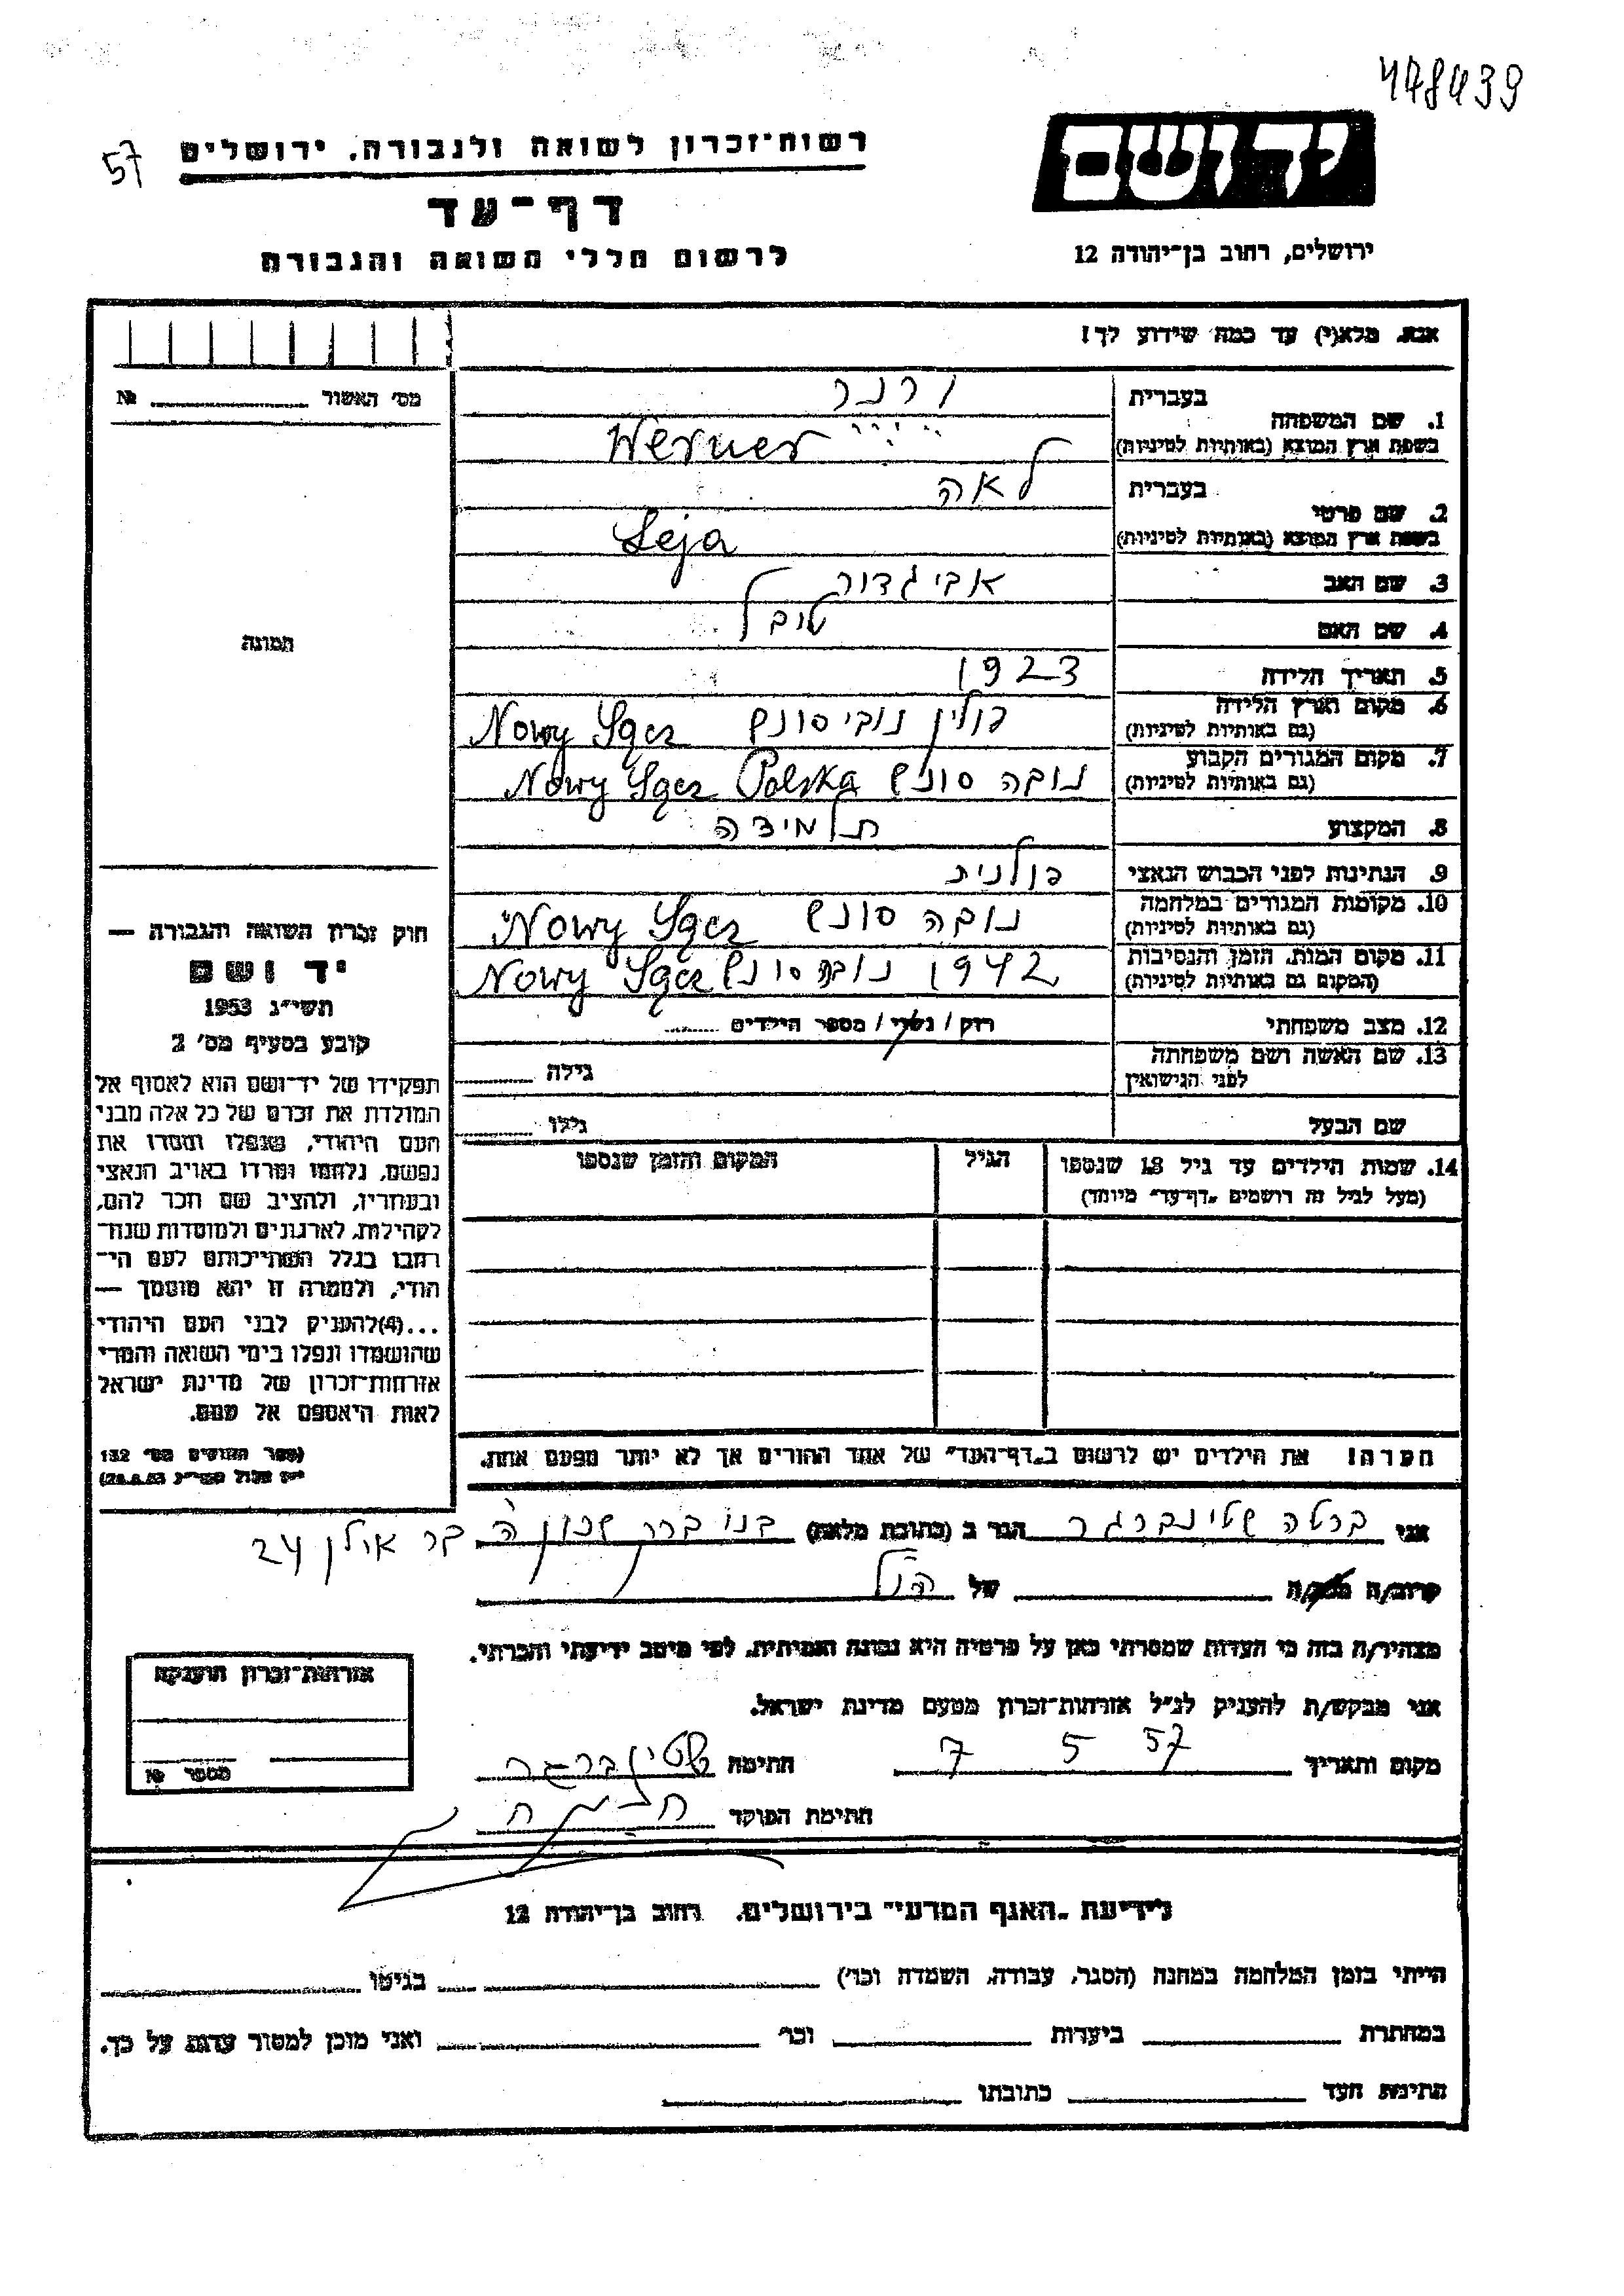 478439
57
רשות־זכרון לשואה ולגבורה, ירושלים
יד ושם
דף־עד
לרשום חללי השואה והגבורה
ירושלים, רחוב בן־יהודה 12
אנא, מלא(י) עד כמה שידוע לך!
מס׳ האשור № 
1. שם המשפחה
בעברית
ורנר
בשפת ארץ המוצא (באותיות לטיניות)
Werner
2. שם פרטי
בעברית
לאה
בשפת ארץ המוצא (באותיות לטיניות)
Leja
3. שם האב
אביגדור
4. שם האם
טובל
התמונה
5. תאריך הלידה
1923
6. מקום וארץ הלידה
(גם באותיות לטיניות)
פולין נובי סונץ Nowy Sącz
7. מקום המגורים הקבוע
(גם באותיות לטיניות)
נובה סונץ Nowy Sącz Polska
8. המקצוע
תלמידה
9. הנתינות לפני הכבוש הנאצי
פולנית
10. מקומות המגורים במלחמה
(גם באותיות לטיניות)
נובה סונץ Nowy Sącz
11. מקום המות, הזמן והנסיבות
(המקום גם באותיות לטיניות)
1942 נובה סונץ Nowy Sącz
12. מצב משפחתי
רווק / נשוי / מספר הילדים
13. שם האשה ושם משפחתה
לפני הנישואין
גילה
שם הבעל
גילו
14. שמות הילדים עד גיל 18 שנספו
(מעל לגיל זה רושמים „דף־עד” מיוחד)
הגיל
המקום והזמן שנספו
חוק זכרון השואה והגבורה —
יד ושם
תשי״ג 1953
קובע בסעיף מס׳ 2
תפקידו של יד־ושם הוא לאסוף אל
המולדת את זכרם של כל אלה מבני
העם היהודי, שנפלו ומסרו את
נפשם, נלחמו ומרדו באויב הנאצי
ובעוזריו, ולהציב שם וזכר להם,
לקהילות, לארגונים ולמוסדות שנח־
רבו בגלל השתייכותם לעם הי־
הודי, ולמטרה זו יהא מוסמך —
...(4)להעניק לבני העם היהודי
שהושמדו ונפלו בימי השואה והמרי
אזרחות־זכרון של מדינת ישראל
לאות היאספם אל עמם.
(ספר החוקים מס׳ 132
28.8.53)
הערה! את הילדים יש לרשום ב„דף־העד” של אחד ההורים אך לא יותר מפעם אחת.
אני ברטה שטינברגר הגר ב (כתובת מלאה) בני ברק שכון ה בר אילן 24
קרוב/ה מכר/ה של הנ״ל
מצהיר/ה בזה כי העדות שמסרתי כאן על פרטיה היא נכונה ואמיתית, לפי מיטב ידיעתי והכרתי.
אני מבקש/ת להעניק לנ״ל אזרחות־זכרון מטעם מדינת ישראל.
מקום ותאריך 7 5 57 חתימה שטינברגר
חתימת הפוקד
אזרחות־זכרון הוענקה
מספר №
לידיעת „האגף המדעי” בירושלים, רחוב בן־יהודה 12
הייתי בזמן המלחמה במחנה (הסגר, עבודה, השמדה וכו׳) בגיטו
במחתרת ביערות וכו׳ ואני מוכן למסור עדות על כך.
חתימת העד כתובתו